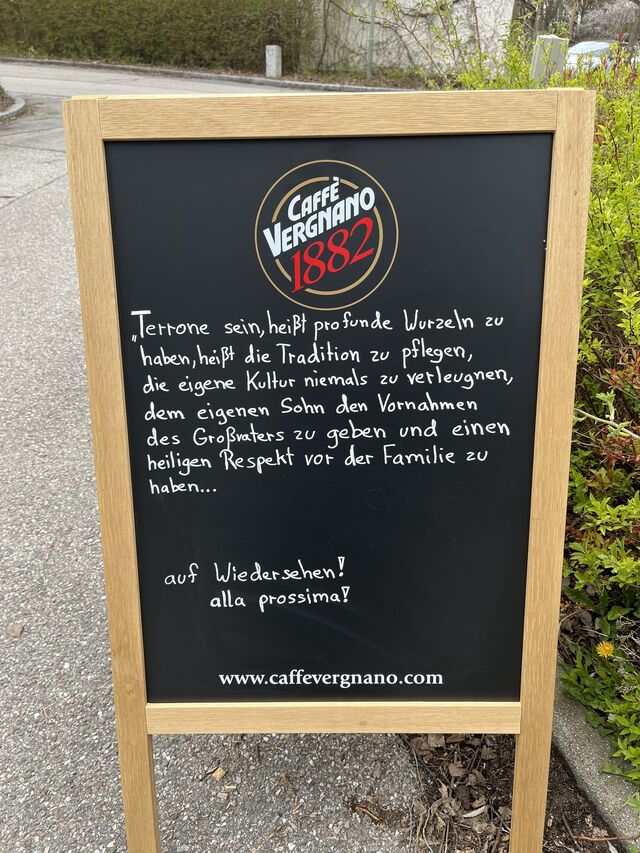 CAFFÈ
VERGNANO
1882
„Terrone sein, heißt profunde Wurzeln zu
haben, heißt die Tradition zu pflegen,
die eigene Kultur niemals zu verleugnen,
dem eigenen Sohn den Vornahmen
des Großvaters zu geben und einen
heiligen Respekt vor der Familie zu
haben...
auf Wiedersehen!
alla prossima!
www.caffevergnano.com